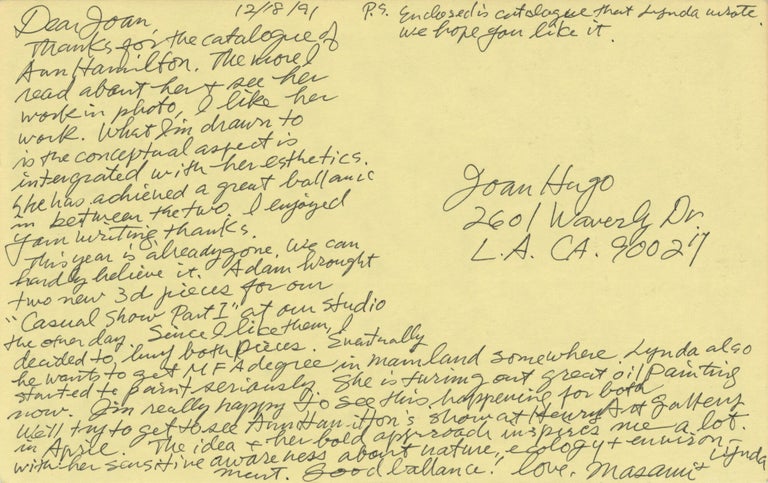 12/18/91
Dear Joan,
Thanks for the catalogue of
Ann Hamilton. The more I
read about her + see her
work in photo, I like her
work. What I'm drawn to
is the conceptual aspect is
intergrated with her esthetics.
She has achieved a great ballance
in between the two. I enjoyed
your writing thanks.
This year is already gone. We can
hardly believe it. Adam brought
two new 3d pieces for our
"Casual Show Part I" at our studio
the other day. Since I like them, I
decided to buy both pieces. Eventually
he wants to get MFA degree in mainland somewhere. Lynda also
started to paint seriously. She is turing out great oil painting
now. I'm really happy to see this happening for both
We'll try to get to see Ann Hamilton's show at Henry Art Gallery
in April. The idea + her bold approach inspires me a lot.
with her sensitive awareness about nature, ecology + environ-
ment. Good ballance! Love, Masami + Lynda
P.S. Enclosed is catalogue that Lynda wrote.
We hope you like it.
Joan Hugo
2601 Waverly Dr.
L.A. CA. 90027